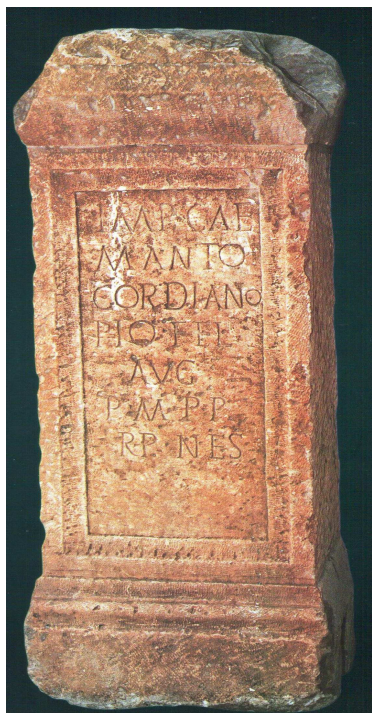 IMP CAE
M ANTO
GORDIANO
PIO FEL
AVG
P M P P
RP NES